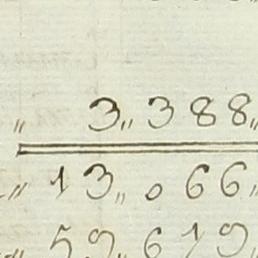 〃 3〃 388〃
〃 13〃 066〃
〃 59〃 619〃